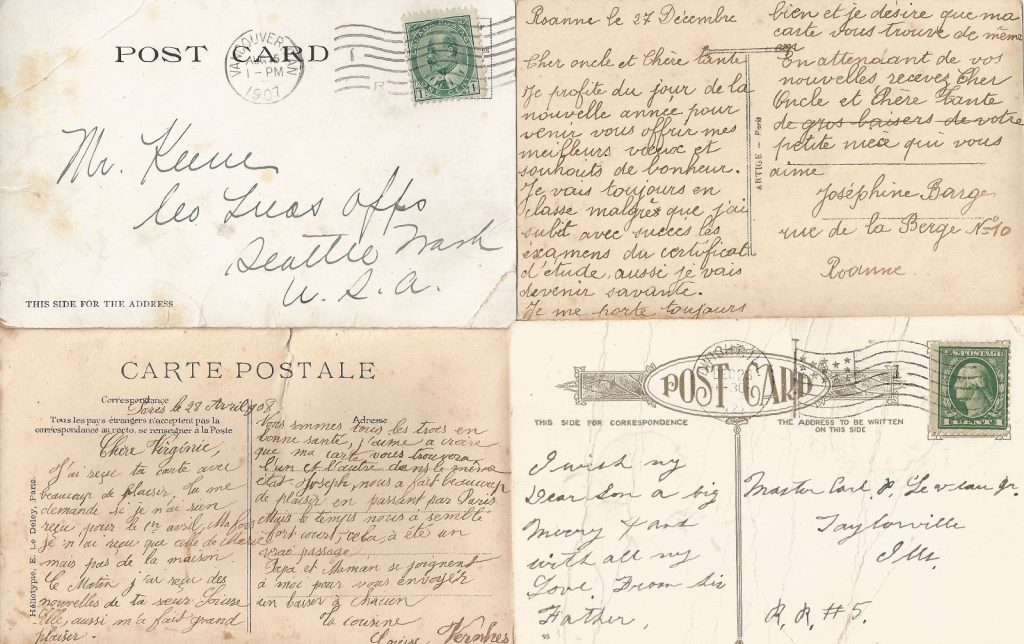 POST CARD
VANCOUVER
1-PM
1907
1
1
Mr. Keene
Leo Lucas Offs
Seattle Wash
U. S. A.
THIS SIDE FOR THE ADDRESS
Roanne le 27 Décembre
Cher oncle et Chère tante
Je profite du jour de la
nouvelle année pour
venir vous offrir mes
meilleurs vœux et
souhaits de bonheur.
Je vais toujours en
classe malgré que j'ai
subit avec succès les
examens du certificat
d'étude, aussi je vais
devenir savante.
Je me porte toujours
ARTIGE - Paris
bien et je désire que ma
carte vous trouve de même
En attendant de vos
nouvelles recevez Cher
Oncle et Chère Tante
de gros baisers de votre
petite nièce qui vous
aime
Joséphine Barge
rue de la Berge N° 10
Roanne
CARTE POSTALE
Correspondance
Paris le 28 Avril 1908
Tous les pays étrangers n'acceptent pas la
correspondance au recto, se renseigner à la Poste
Chère Virginie,
J'ai reçu ta carte avec
beaucoup de plaisir, tu me
demande si je n'ai rien
reçu pour le 1er avril,
je n'ai reçu que celle de
mais pas de la maison
Ce Matin j'ai reçu des
nouvelles de ta seur Louise
Elle aussi m'a fait grand
plaisir.
Héliotype. E. Le Deley, Paris.
Adresse
Vous sommes tous les trois en
bonne santé, j'aime a croire
que ma carte vous trouvera
l'un et l'autre dans le même
état. Joseph, nous a fait beaucoup
de plaisir en passant par Paris
Mais le temps nous a semblé
fort court, cela, a été un
vrai passage
Papa et Maman se joignent
à moi pour vous envoyer
un baiser à chacun
ta cousine
Louise Vernhes
POST CARD
DWIGHT, ILL.
U.S. POSTAGE
1 CENT 1
THIS SIDE FOR CORRESPONDENCE
THE ADDRESS TO BE WRITTEN
ON THIS SIDE
I wish my
Dear Son a big
Merry X mas
with all my
Love. From his
Father.
95
Master Carl P.
Taylorville
Ill.
R. R. #5.